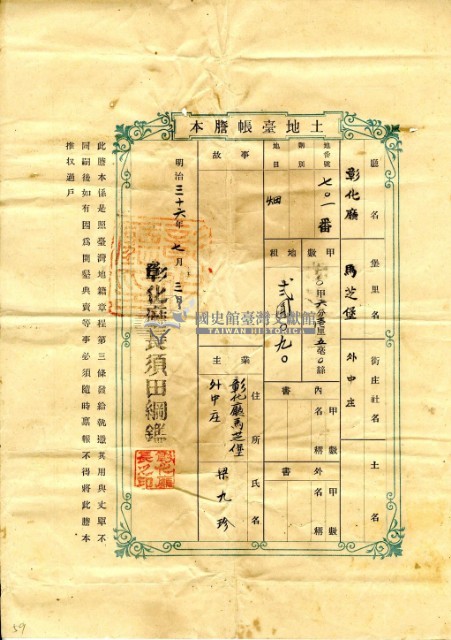 土地臺帳謄本
廳名
彰化廳
堡里名
馬芝堡
街庄社名
外中庄
土名
地番號
七〇一番
則別
地目
畑
甲數
〇甲六分零厘五毫〇絲
地租
貳圓〇九〇
內書
甲數
名稱
外書
甲數
名稱
事故
業主
住所
氏名
彰化廳馬芝堡
外中庄
梁九珍
明治三十六年七月三日
彰化廳長須田綱鑑
彰化廳長之印
此謄本係是照臺灣地籍章程第三條發給執憑其用與丈單不
同嗣後如有因為開墾典賣等事必須隨時稟報不得將此謄本
推收過戶
國史館臺灣文獻館
TAIWAN HISTORICA
59